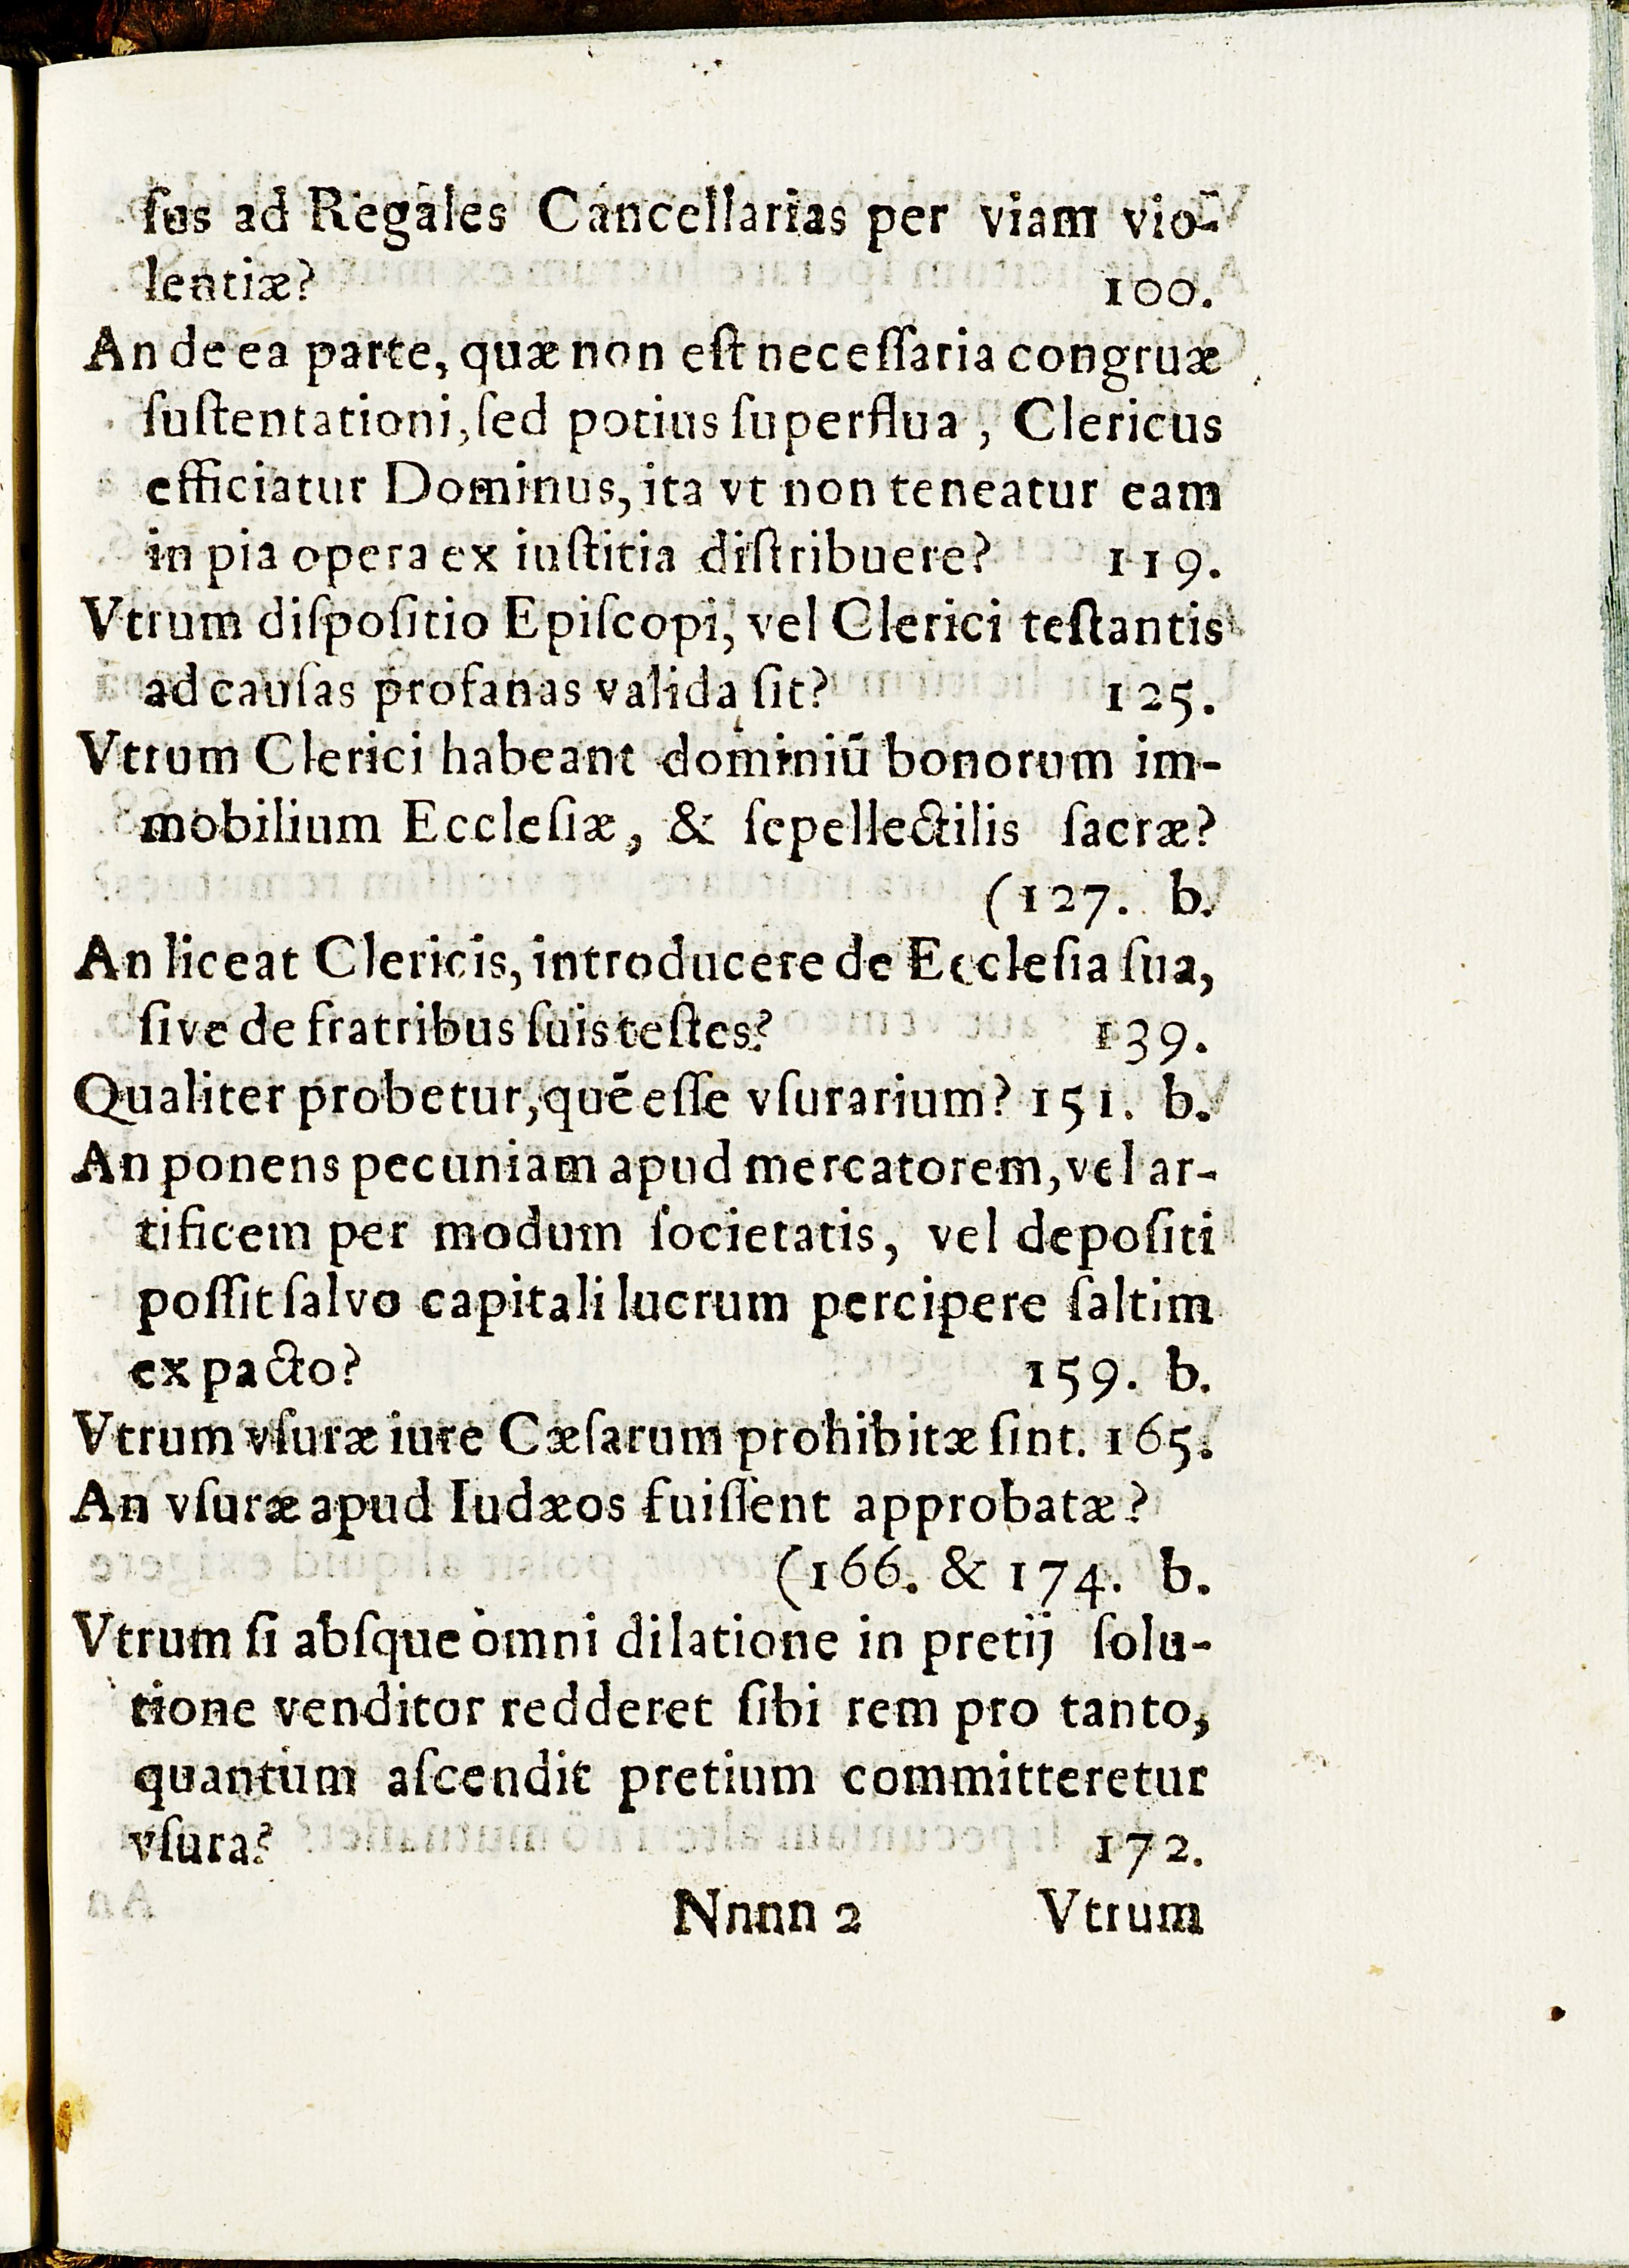 ſus ad Regales Cancellarias per viam vio-
lentiæ? 100.
An de ea parte, quæ non eſt neceſſaria congruæ
ſuſtentationi, ſed potius ſuperflua, Clericus
efficiatur Dominus, ita vt non teneatur eam
in pia opera ex iuſtitia diſtribuere? 119.
Vtrum diſpoſitio Epiſcopi, vel Clerici teſtantis
ad cauſas profanas valida ſit? 125.
Vtrum Clerici habeant dominiū bonorum im-
mobilium Eccleſiæ, & ſepellectilis ſacræ?
(127. b.
An liceat Clericis, introducere de Eccleſia ſua,
ſive de fratribus ſuis teſtes? 139.
Qualiter probetur, quē eſſe vſurarium? 151. b.
An ponens pecuniam apud mercatorem, vel ar-
tificem per modum ſocietatis, vel depoſiti
poſſit ſalvo capitali lucrum percipere ſaltim
ex pacto? 159. b.
Vtrum vſuræ iure Cæſarum prohibitæ ſint. 165.
An vſuræ apud Iudæos fuiſſent approbatæ?
(166. & 174. b.
Vtrum ſi abſque omni dilatione in pretij ſolu-
tione venditor redderet ſibi rem pro tanto,
quantum aſcendit pretium committeretur
vſura? 172.
Nnnn 2 Vtrum